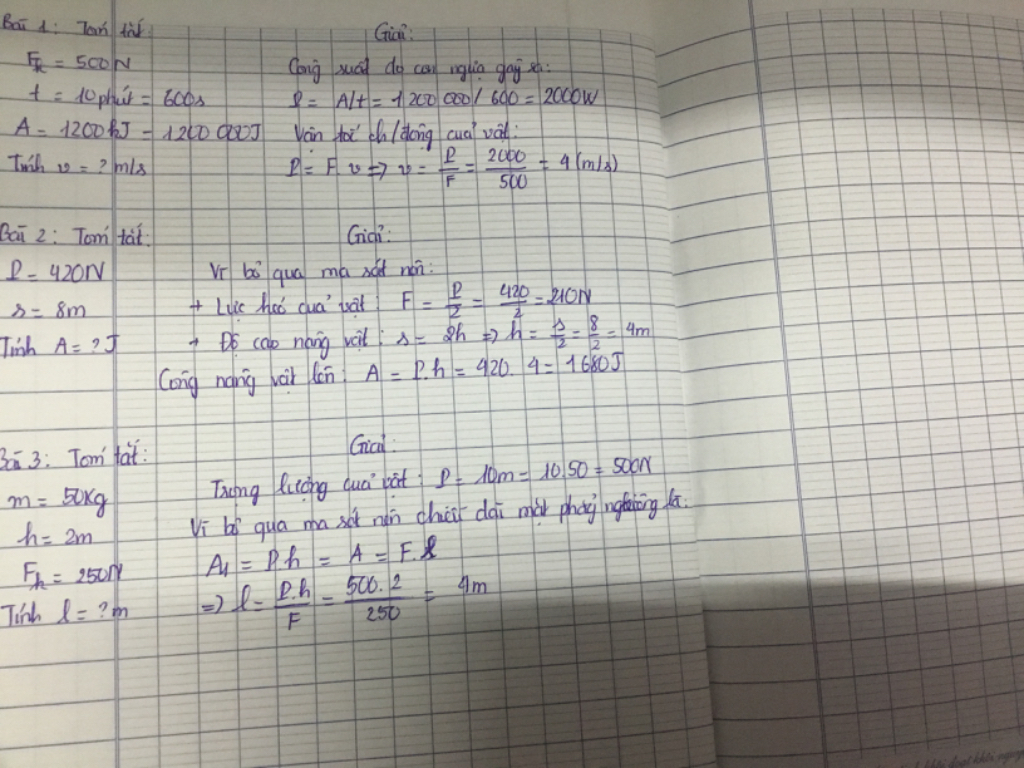 Bài 1: Tóm tắt:
Giải:
Fk = 500N
Công suất do con ngựa gây ra:
t = 10 phút = 600s
P = A/t = 1 200 000 / 600 = 2000W
A = 1200kJ = 1200 000J
Vận tốc ch/động của vật:
Tính v = ? m/s
P = F.v => v = P/F = 2000/500 = 4 (m/s)
Bài 2: Tóm tắt:
Giải:
P = 420N
Vì bỏ qua ma sát nên:
s = 8m
+ Lực kéo của vật: F = P/2 = 420/2 = 210N
Tính A = ? J
+ Độ cao nâng vật: s = 2h => h = s/2 = 8/2 = 4m
Công nâng vật lên: A = P.h = 420. 4 = 1680J
Bài 3: Tóm tắt:
Giải:
m = 50kg
Trọng lượng của vật: P = 10m = 10.50 = 500N
h = 2m
Vì bỏ qua ma sát nên chiều dài mặt phẳng nghiêng là:
Fk = 250N
A1 = P.h = A = F.l
Tính l = ? m
=> l = P.h/F = 500.2/250 = 4m